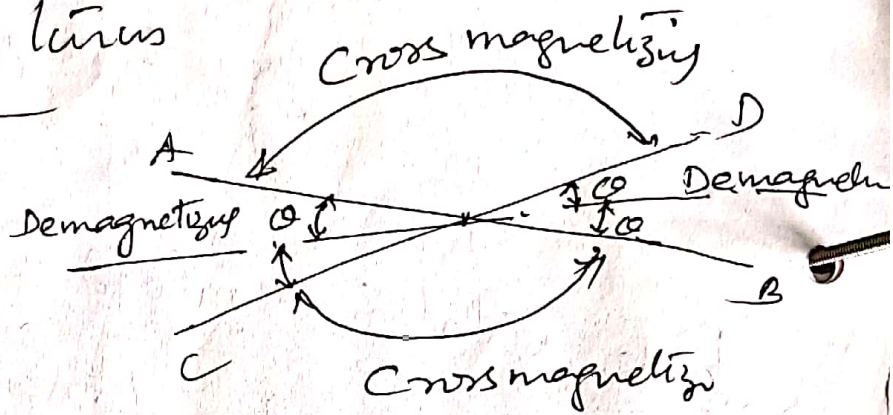 Cross magnetizing
A
D
Demagnetizing θ
θ Demagnet
θ
B
C
Cross magnetiz